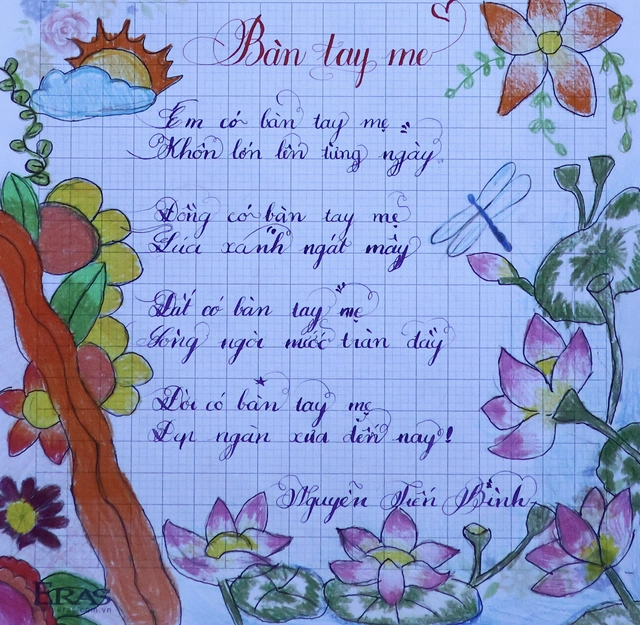 Bàn tay mẹ
Em có bàn tay mẹ
Khôn lớn lên từng ngày.
Đồng có bàn tay mẹ
Lúa xanh ngát mây
Đất có bàn tay mẹ
Sông ngòi nước tràn đầy
Đời có bàn tay mẹ
Đẹp ngàn xưa đến nay!
Nguyễn Tiến Bình
ERAS